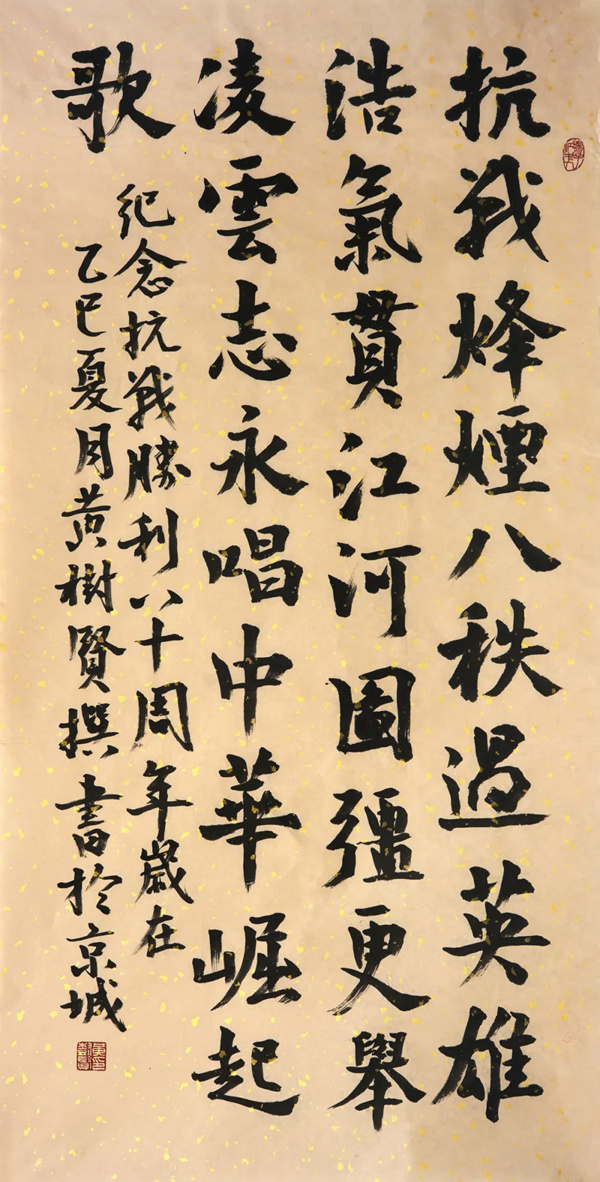 抗戰烽煙八秩過英雄
浩氣貫江河固疆更舉
凌雲志永唱中華崛起
歌
紀念抗戰勝利八十周年歲在
乙巳夏月黃樹賢撰書於京城